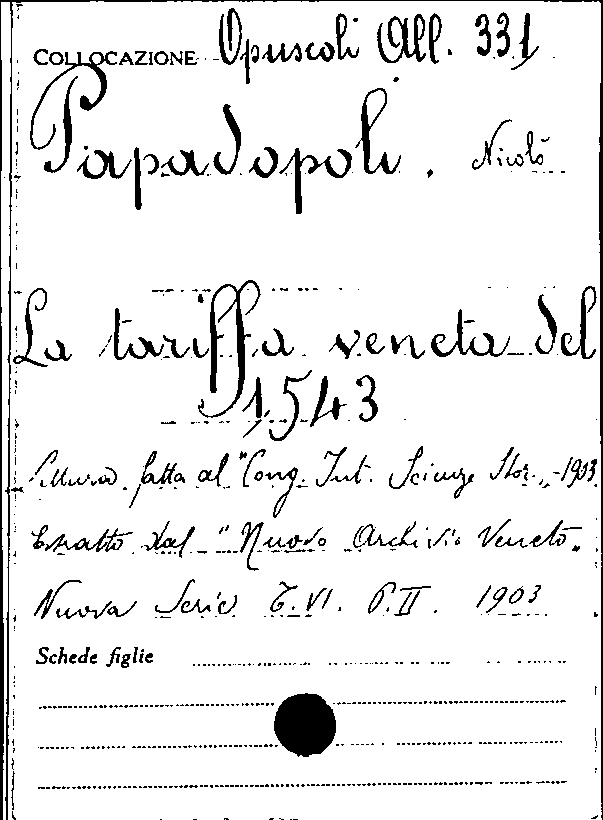 COLLOCAZIONE Opuscoli All. 331
Papadopoli. Nicolò
La tariffa veneta del
1543
Lettura fatta al "Cong. Int. Scienze Stor.„ 1903
Estratto dal "Nuovo Archivio Veneto„
Nuova Serie T. VI. P. II. 1903
Schede figlie